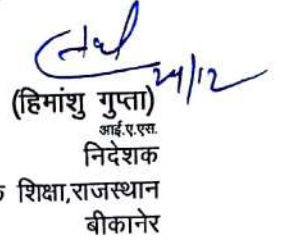 24/12
(हिमांशु गुप्ता)
आई.ए.एस.
निदेशक
शिक्षा,राजस्थान
बीकानेर